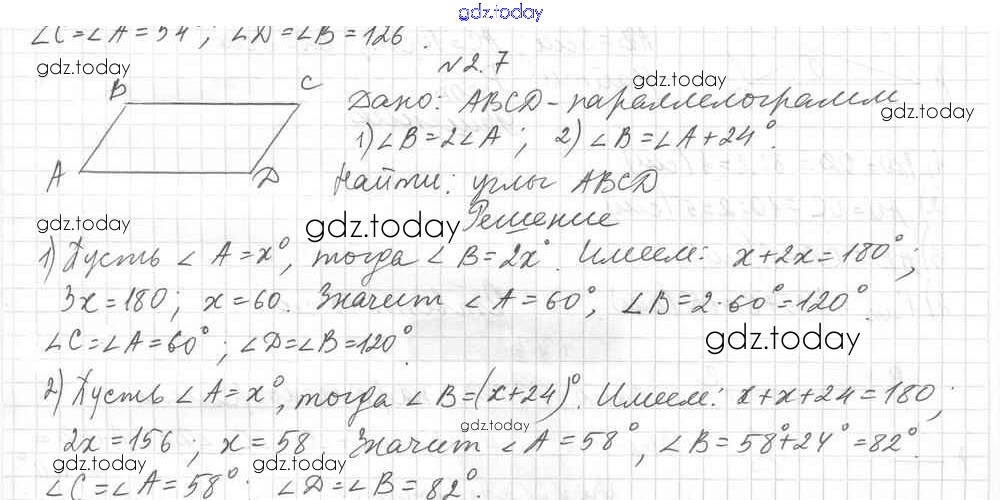 gdz.today
∠C=∠A=54°; ∠D=∠B=126°.
gdz.today
№2.7
B C
gdz.today
Дано: ABCD-параллелограмм
gdz.today
1) ∠B=2∠A; 2) ∠B=∠A+24°.
A D
Найти: углы ABCD
gdz.today
gdz.today
Решение
1) Пусть ∠A=x°, тогда ∠B=2x°. Имеем: x+2x=180°;
3x=180; x=60. Значит ∠A=60°, ∠B=2·60°=120°.
gdz.today
∠C=∠A=60°; ∠D=∠B=120°.
2) Пусть ∠A=x°, тогда ∠B=(x+24)°. Имеем: x+x+24=180;
gdz.today
2x=156; x=58. Значит ∠A=58°, ∠B=58°+24°=82°.
gdz.today gdz.today gdz.today
∠C=∠A=58°; ∠D=∠B=82°.